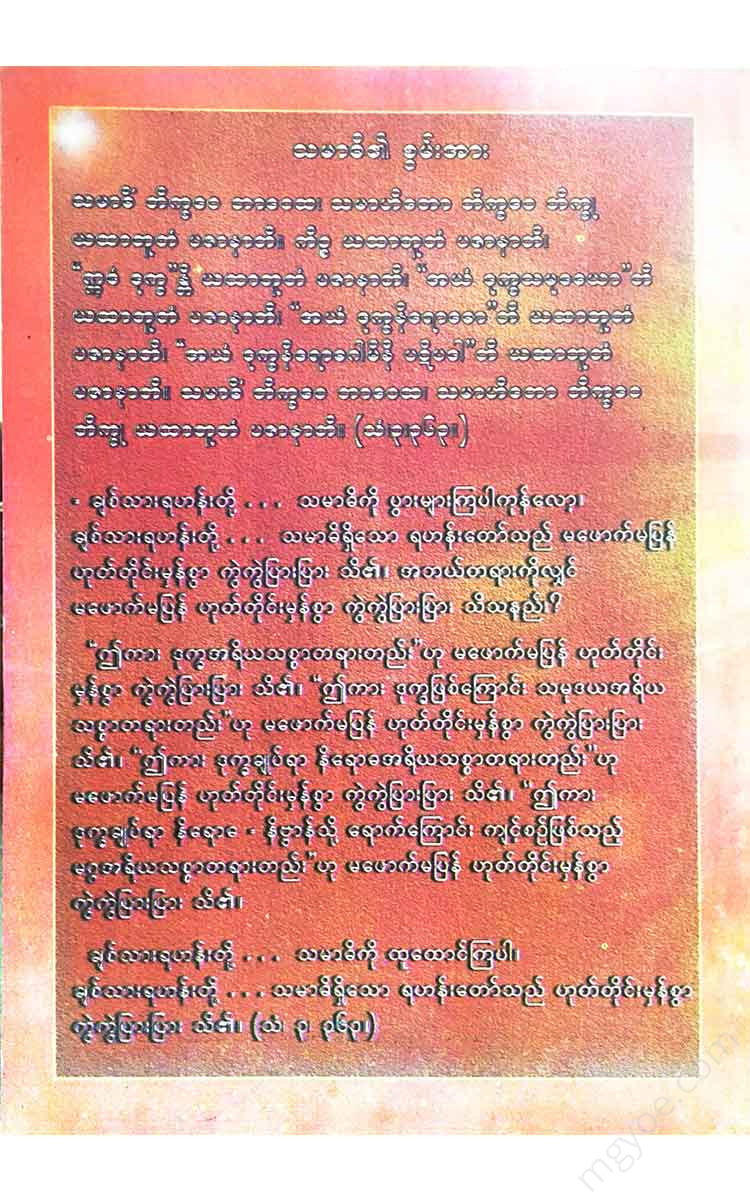 သမာဓိ၏ စွမ်းအား
သမာဓိံ ဘိက္ခဝေ ဘာဝေထ၊ သမာဟိတော ဘိက္ခဝေ ဘိက္ခု
ယထာဘူတံ ပဇာနာတိ။ ကိဉ္စ ယထာဘူတံ ပဇာနာတိ။
“ဣဒံ ဒုက္ခ”န္တိ ယထာဘူတံ ပဇာနာတိ၊ “အယံ ဒုက္ခသမုဒယော”တိ
ယထာဘူတံ ပဇာနာတိ၊ “အယံ ဒုက္ခနိရောဓော”တိ ယထာဘူတံ
ပဇာနာတိ၊ “အယံ ဒုက္ခနိရောဓဂါမိနီ ပဋိပဒါ”တိ ယထာဘူတံ
ပဇာနာတိ။ သမာဓိံ ဘိက္ခဝေ ဘာဝေထ၊ သမာဟိတော ဘိက္ခဝေ
ဘိက္ခု ယထာဘူတံ ပဇာနာတိ။ (သံ၊၃၊၃၆၃။)
= ချစ်သားရဟန်းတို့ . . . သမာဓိကို ပွားများကြပါကုန်လော့၊
ချစ်သားရဟန်းတို့ . . . သမာဓိရှိသော ရဟန်းတော်သည် မဖောက်မပြန်
ဟုတ်တိုင်းမှန်စွာ ကွဲကွဲပြားပြား သိ၏။ အဘယ်တရားကိုလျှင်
မဖောက်မပြန် ဟုတ်တိုင်းမှန်စွာ ကွဲကွဲပြားပြား သိသနည်း?
“ဤကား ဒုက္ခအရိယသစ္စာတရားတည်း”ဟု မဖောက်မပြန် ဟုတ်တိုင်း
မှန်စွာ ကွဲကွဲပြားပြား သိ၏။ “ဤကား ဒုက္ခဖြစ်ကြောင်း သမုဒယအရိယ
သစ္စာတရားတည်း”ဟု မဖောက်မပြန် ဟုတ်တိုင်းမှန်စွာ ကွဲကွဲပြားပြား
သိ၏။ “ဤကား ဒုက္ခချုပ်ရာ နိရောဓအရိယသစ္စာတရားတည်း”ဟု
မဖောက်မပြန် ဟုတ်တိုင်းမှန်စွာ ကွဲကွဲပြားပြား သိ၏။ “ဤကား
ဒုက္ခချုပ်ရာ နိရောဓ = နိဗ္ဗာန်သို့ ရောက်ကြောင်း ကျင့်စဉ်ဖြစ်သည့်
မဂ္ဂအရိယသစ္စာတရားတည်း”ဟု မဖောက်မပြန် ဟုတ်တိုင်းမှန်စွာ
ကွဲကွဲပြားပြား သိ၏။
ချစ်သားရဟန်းတို့ . . . သမာဓိကို ထူထောင်ကြပါ။
ချစ်သားရဟန်းတို့ . . . သမာဓိရှိသော ရဟန်းတော်သည် ဟုတ်တိုင်းမှန်စွာ
ကွဲကွဲပြားပြား သိ၏။ (သံ၊ ၃၊ ၃၆၃။)
mgyoe.com